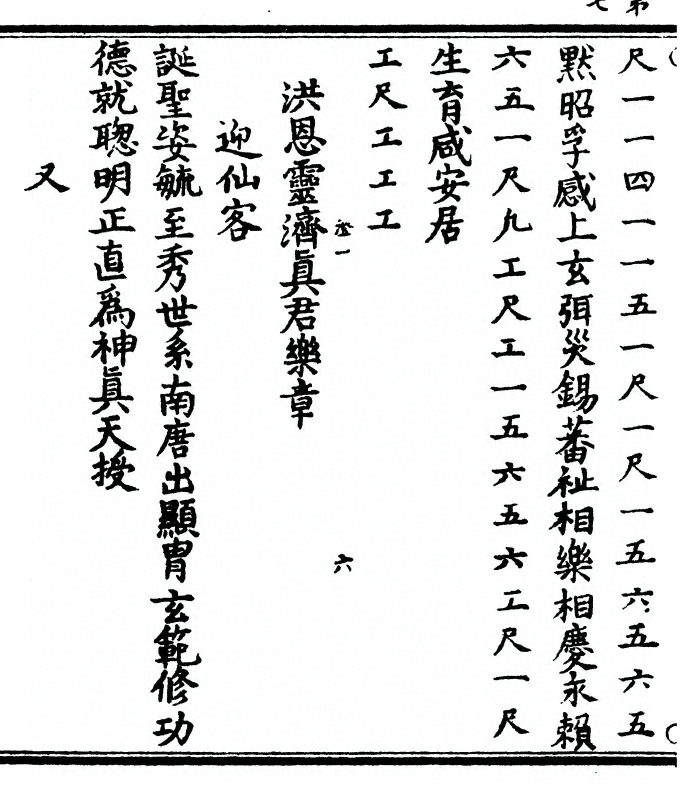 尺一一四一一五一尺一尺一五六五六五
黙昭孚感上玄弭災錫蕃祉相樂相慶永賴
六五一尺凡工尺工一五六五六工尺一尺
生育咸安居
工尺工工工
一 六
洪恩靈濟眞君樂章
迎仙客
誕聖姿毓至秀世系南唐出顯胄玄範修功
德就聰明正直爲神眞天授
又